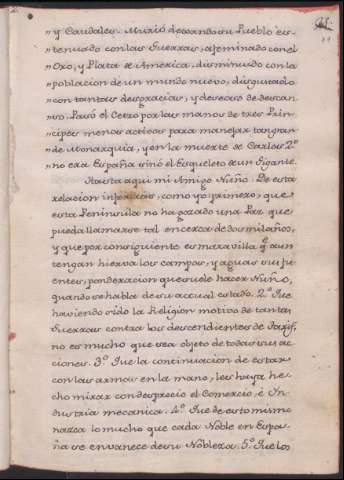 y Caudales. Murió dexando su Pueblo es-
tenuado con las Guerras, afeminado con el
Oro, y Plata de America, disminuido con la
poblacion de un mundo nuevo, disgustado
con tantas desgracias, y deseoso de descan-
so. Pasó el Cetro por las manos de tres Prin-
cipes menos activos para manejar tan gran-
de Monarquia, y en la muerte de Carlos 2.º
no era España sino el Esqueleto de un Gigante.
Hasta aqui mi Amigo Nuño. De esta
relacion inferirás, como yo: primero, que
esta Peninsula no ha gozado una Paz que
pueda llamarse tal en cerca de dos mil años,
y que por consiguiente es maravilla q.e aun
tengan hierva los campos, y aguas sus fu-
entes, ponderacion que suele hacer Nuño,
quando se habla de su actual estado. 2.º Que
haviendo sido la Religion motivo de tantas
Guerras contra los descendientes de Tarif,
no es mucho que sea objeto de todas sus ac-
ciones. 3.º Que la continuacion de estar
con las armas en la mano, les haya he-
cho mirar con desprecio el Comercio, é In-
dustria mecanica. 4.º Que de esto mismo
nazca lo mucho que cada Noble en Espa-
ña se envanece de su Nobleza. 5.º Que los